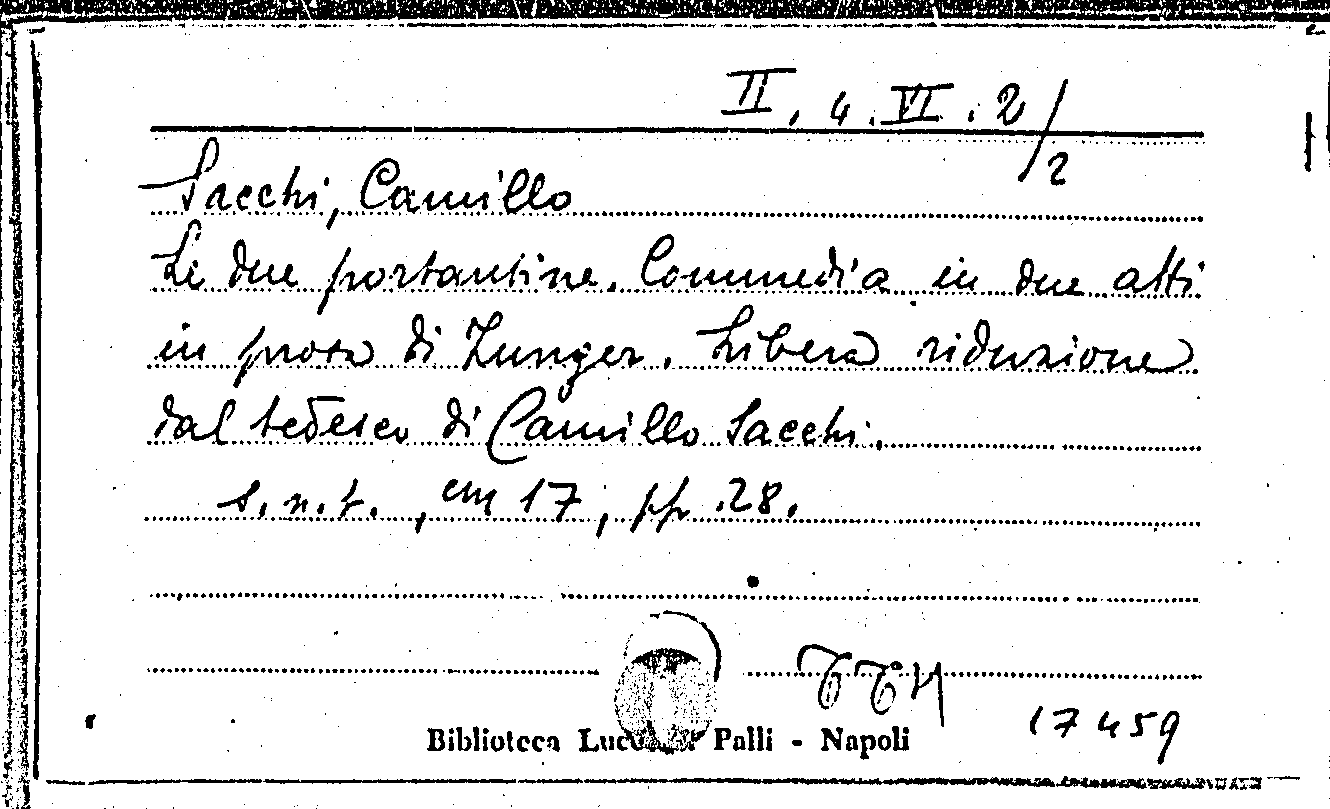 II. 4. VI. 2/2
Sacchi, Camillo
Le due portantine. Commedia in due atti
in prosa di Zunger. Libera riduzione
dal tedesco di Camillo Sacchi.
s.n.t., cm 17, pp. 28.
17459
Biblioteca Palli - Napoli